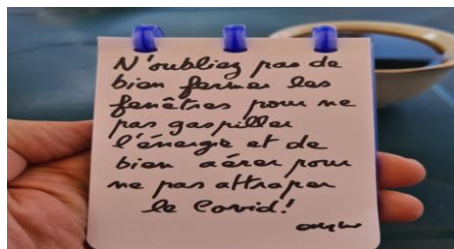 N'oubliez pas de
bien fermer les
fenêtres pour ne
pas gaspiller
l'énergie et de
bien aérer pour
ne pas attraper
le Covid!